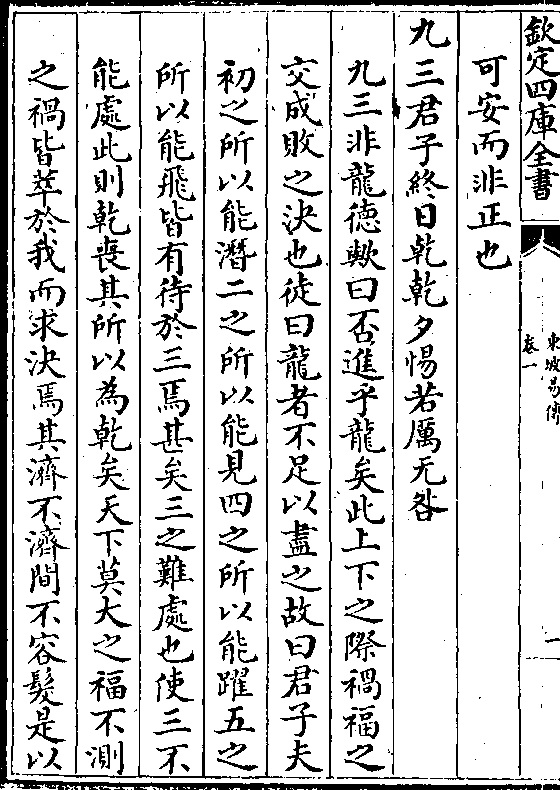 欽定四庫全書
東坡易傳
卷一
可安而非正也
九三君子終日乾乾夕惕若厲无咎
九三非龍德歟曰否進乎龍矣此上下之際禍福之
交成敗之決也徒曰龍者不足以盡之故曰君子夫
初之所以能潛二之所以能見四之所以能躍五之
所以能飛皆有待於三焉甚矣三之難處也使三不
能處此則乾喪其所以為乾矣天下莫大之福不測
之禍皆萃於我而求決焉其濟不濟間不容髮是以